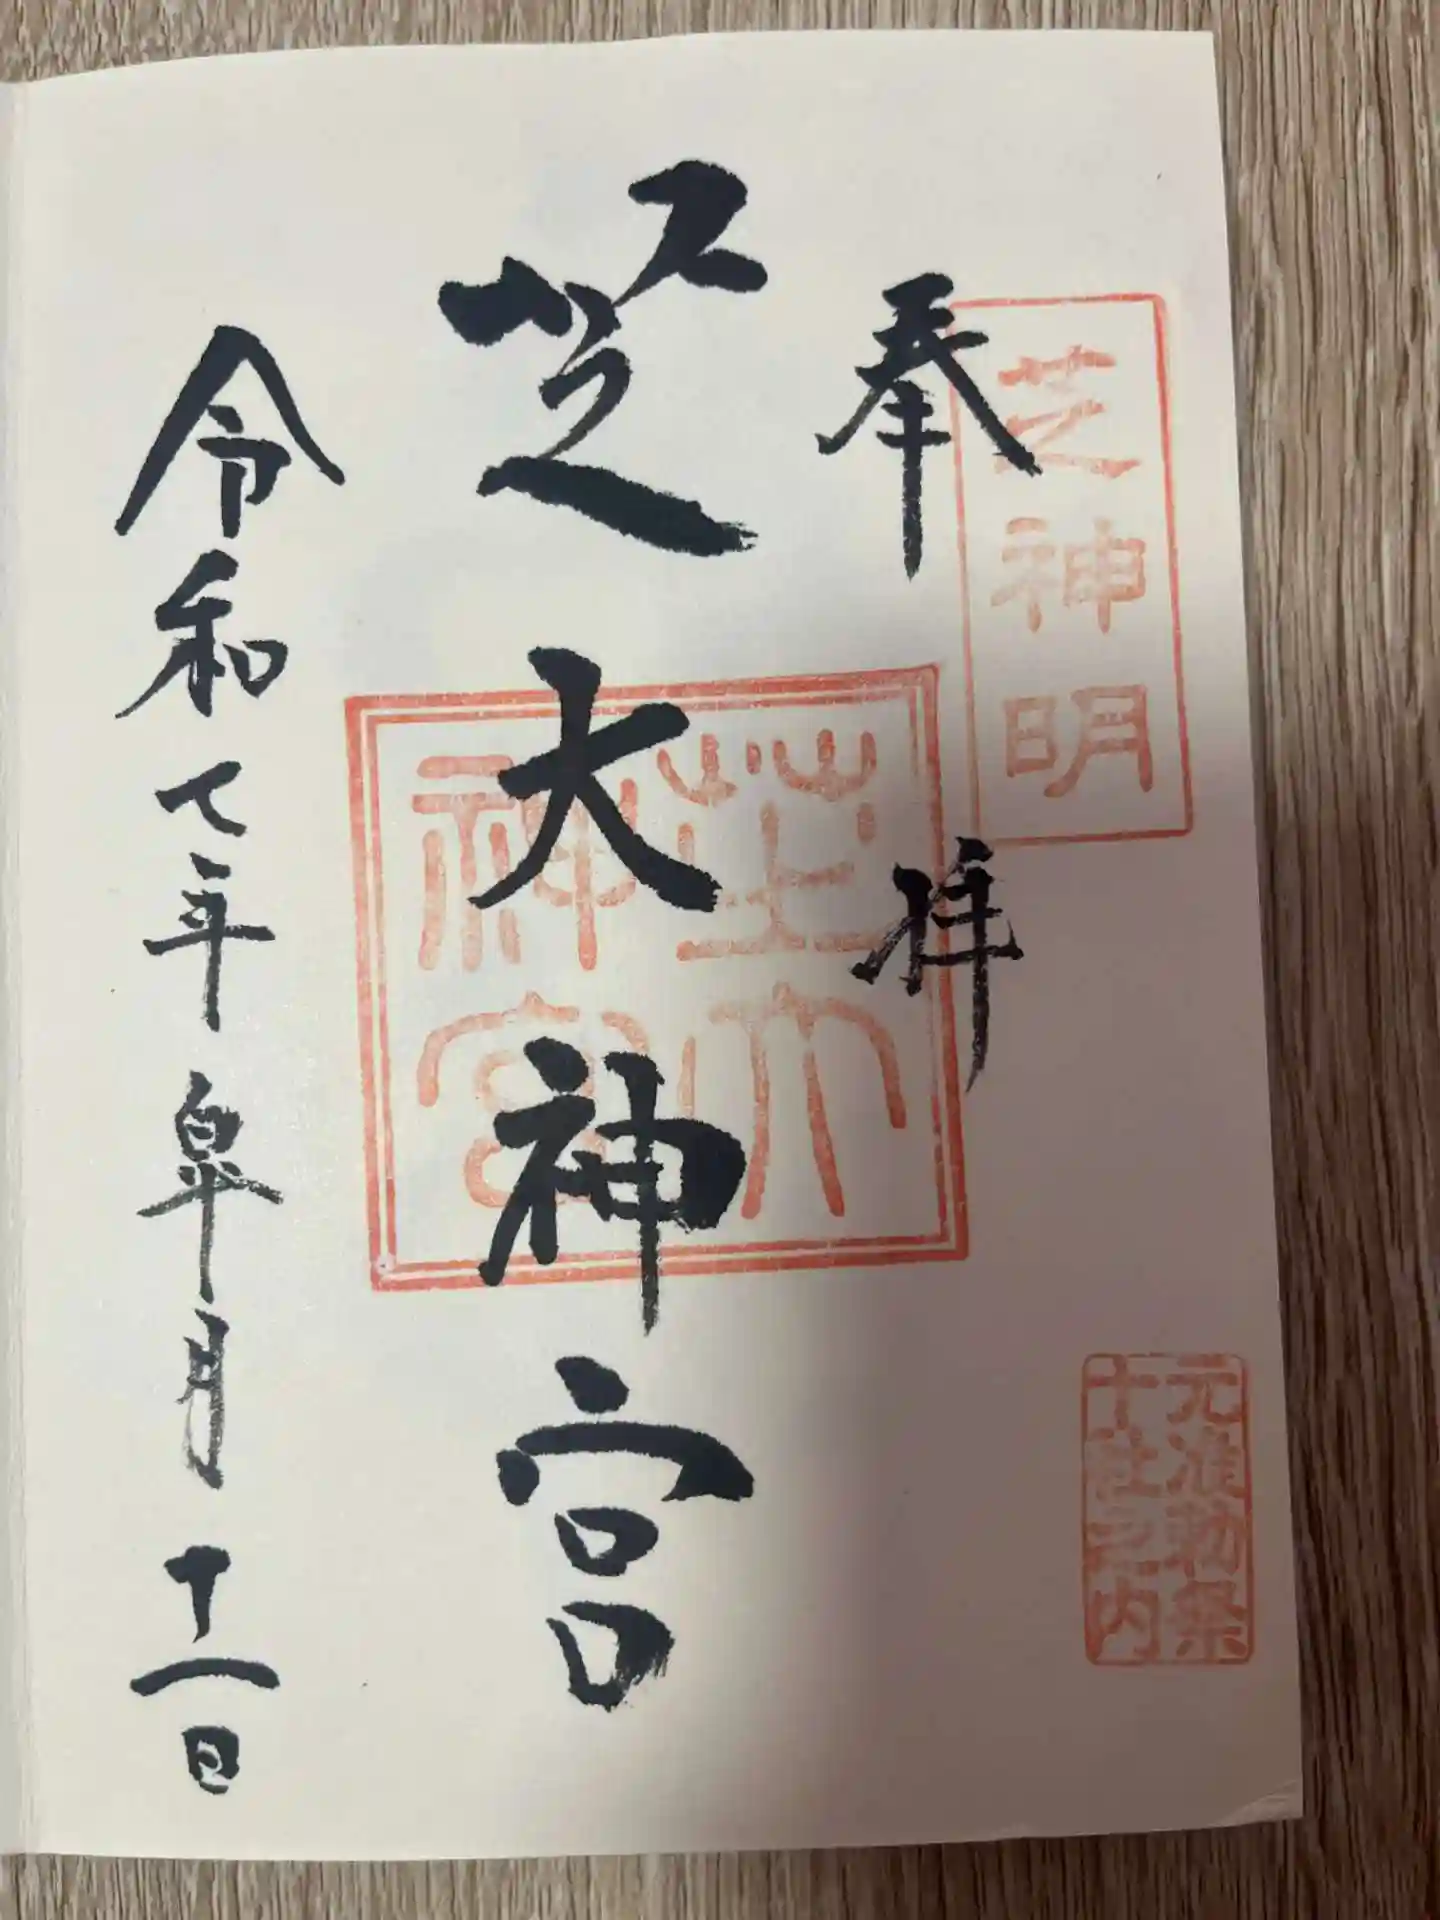 芝神明
奉拝
元准勅祭
十社之内
芝大神宮
芝大
神宮
令和七年皐月十一日